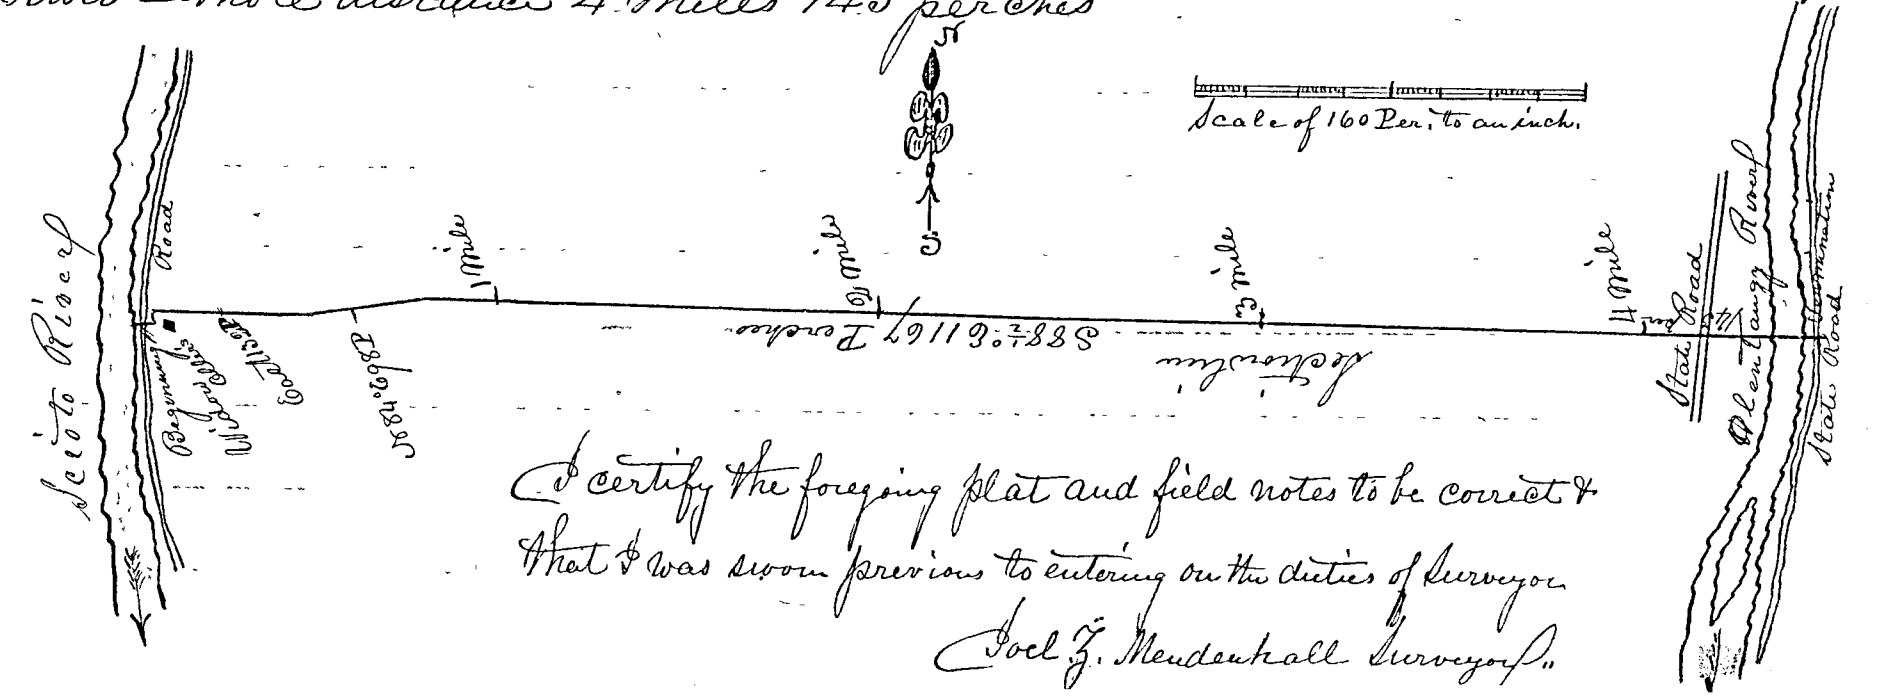 whole distance 4 Miles 145 perches
N
S
Scale of 160 Per. to an inch.
Scioto River
Road
Beginning
Widow
East 115P
N84°E98P
1 Mile
2 Mile
3 Mile
4 Mile
S88½°E 1167 Perches
Section line
State Road
Olentangy River
Termination
State Road
I certify the foregoing plat and field notes to be correct &
that I was sworn previous to entering on the duties of Surveyor
Joel Z. Mendenhall Surveyor